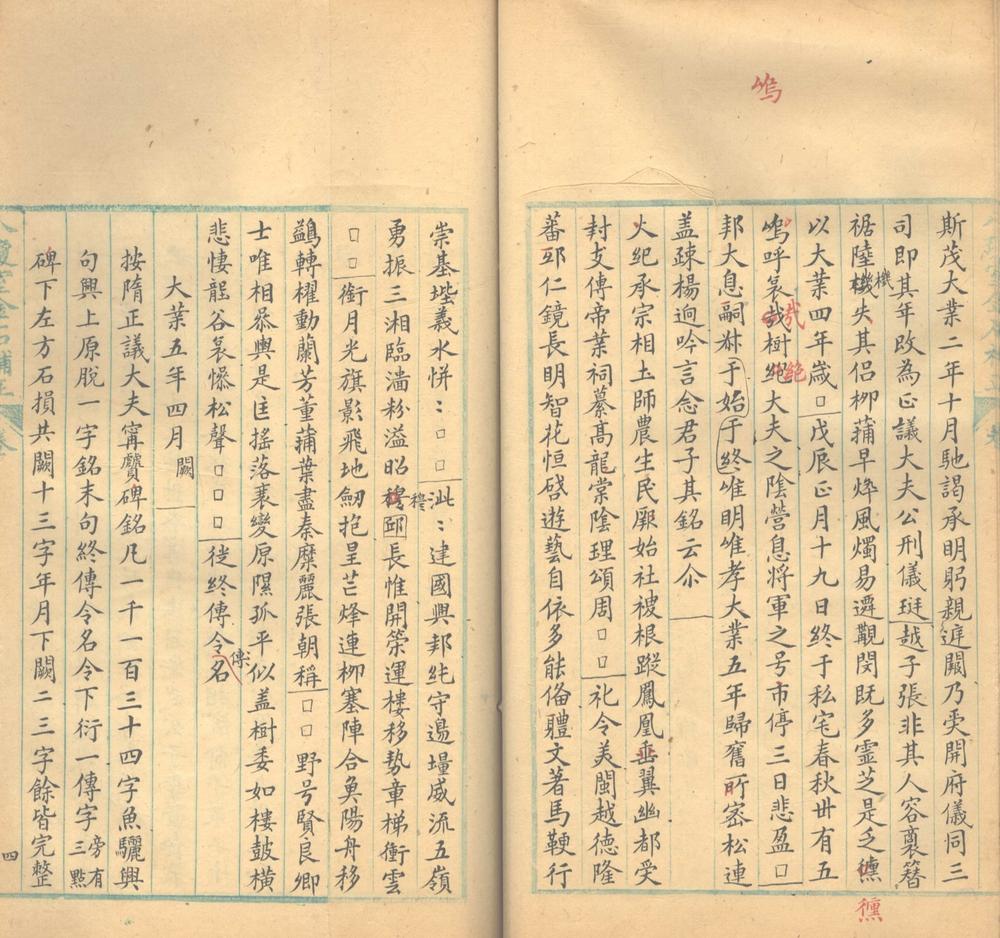 斯茂大業二年十月馳謁承明躬親遊闕乃霓開府儀同三
司即其年改為正議大夫公刑儀珽越子張非其人容裏簮
裾陸機失其侶柳蒲早烨風燭易遴覯閔既多霊芝是乏
以大業四年歲□戊辰正月十九日終于私宅春秋丗有五
嗚呼哀哉樹絕大夫之陰營息将軍之号市停三日悲盈□
邦大息嗣㳤于始于終唯明唯孝大業五年歸舊所宻松連
盖疎楊逈吟言念君子其銘云尒
火紀承宗相土師農生民厥始社被根蹤鳳凰垂翼幽都受
封支傳帝葉祠纂高龍棠陰理頌周□□礼令美閩越德隆
蕃邳仁鏡長明智花恒啓遊藝自依多能俻體文著馬鞕行
崇基埊義水恲〻□□泚〻建國興邦純守邊壃威流五嶺
勇振三湘臨㵎粉溢昭穆郎長惟開榮運樓移勢車梯衝雲
□□銜月光旗影飛地劒抱星芒烽連柳塞陣合奐陽舟移
鷁轉櫂動蘭芳董蒱葉盡秦糜麗張朝稱□□野号賢良卿
士唯相恭輿是匡摇落衰變原隰孤平似盖樹委如樓鼓横
悲悽誔谷哀㥦松聲□□□徙終傳令名
大業五年四月闕
按隋正議大夫甯贙碑銘凡一千一百三十四字魚驪興
句興上原脫一字銘末句終傳令名令下衍一傳字旁有三點
碑下左方石損共闕十三字年月下闕二三字餘皆完整
四